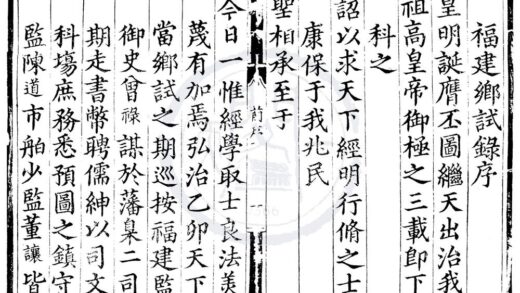 福建鄉試錄序
皇明誕膺丕圖繼天出治我
祖高皇帝御極之三載卽下
科之
詔以求天下經明行脩之士
康保于我兆民
聖相承至于
今日一惟經學取士良法美
蔑有加焉弘治乙卯天下
當鄉試之期巡按福建監
御史曾祿謀於藩臬二司
期走書幣聘儒紳以司文
科場庶務悉預圖之鎮守
監陳道市舶少監董讓皆